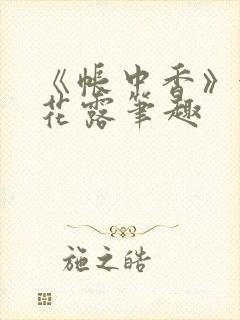 《帐中香》
花露笔趣
施之皓